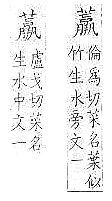 倫爲切菜名葉似
竹生水旁文一
盧戈切菜名
生水中文一